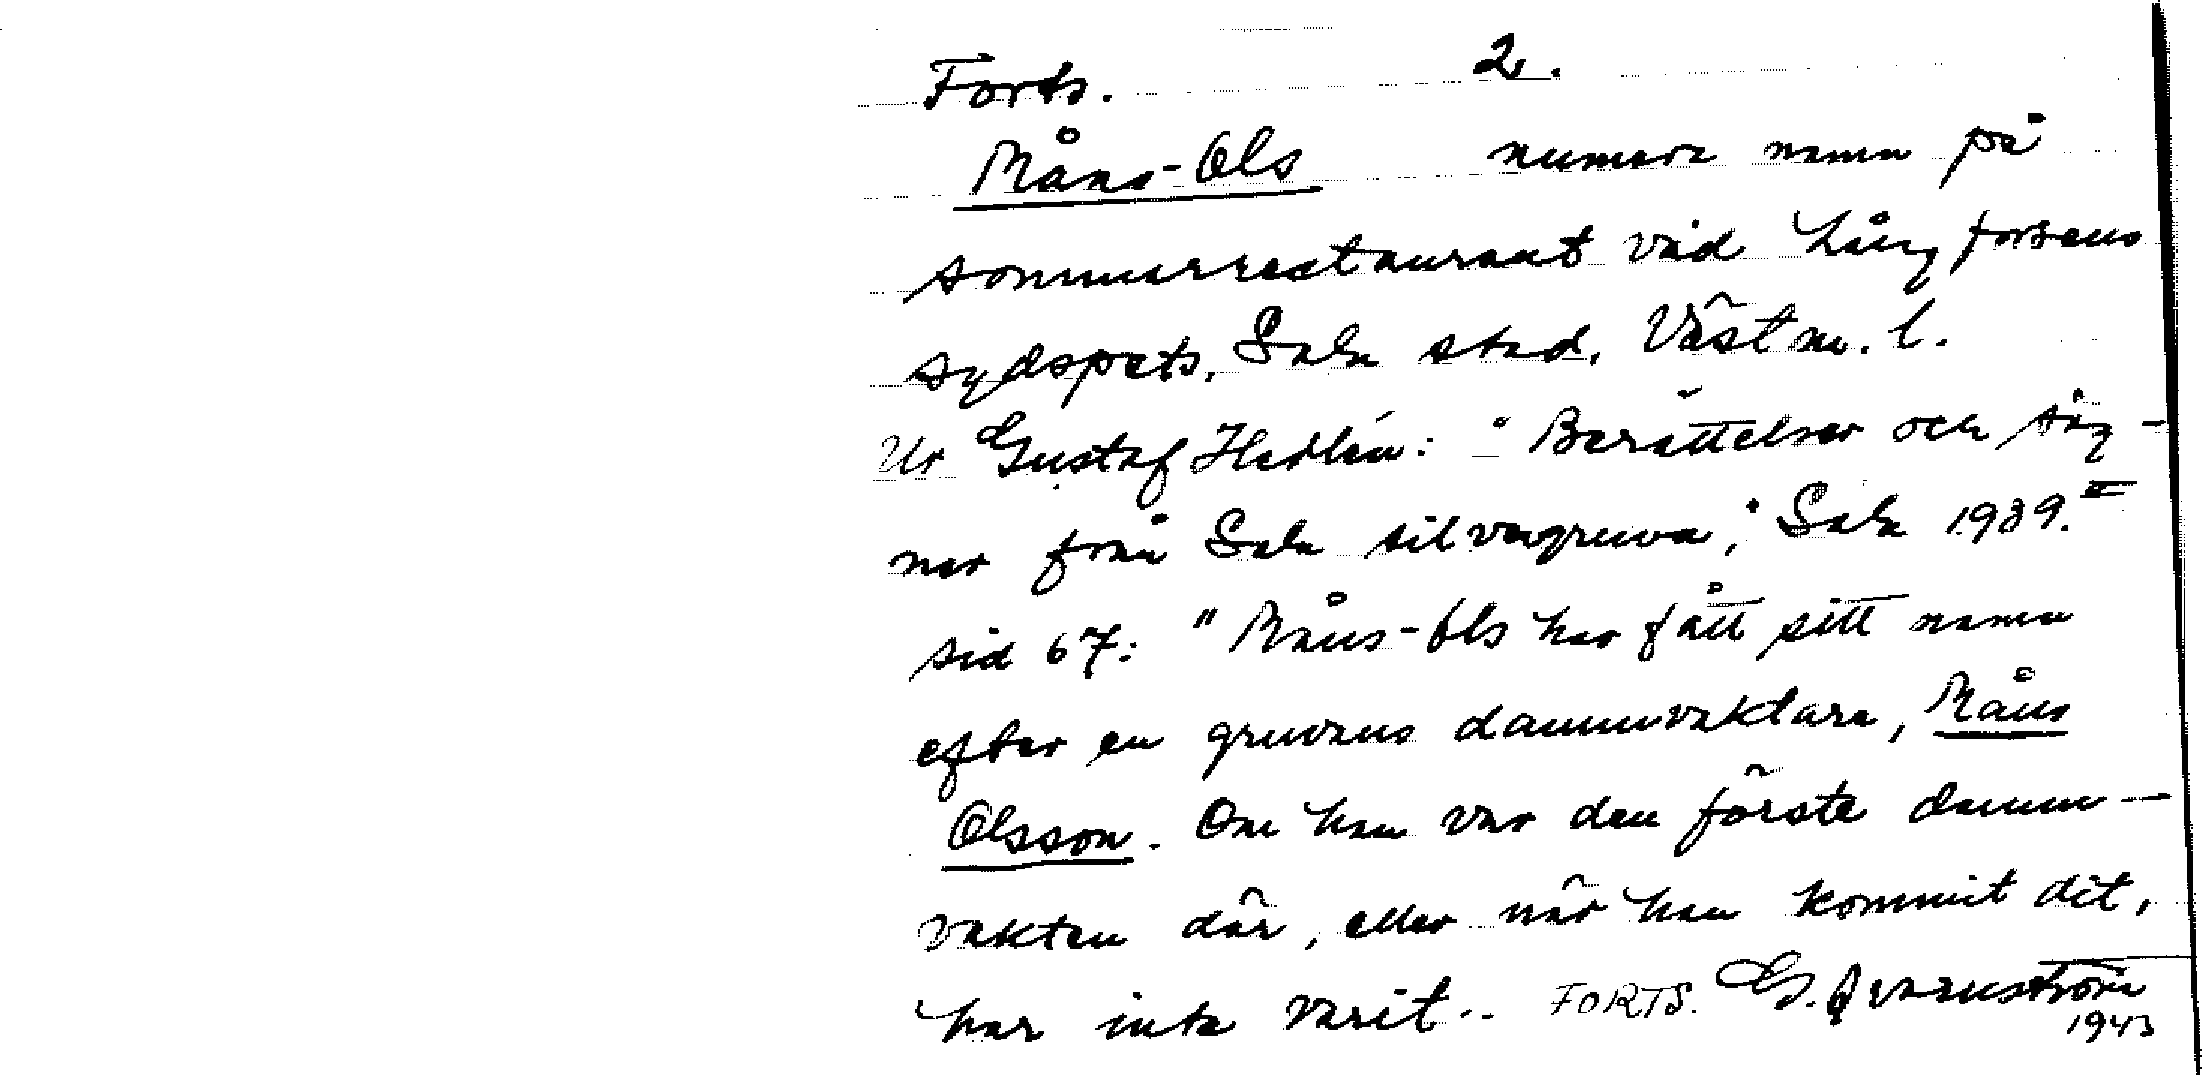 Forts. 2.
Måns-Ols numera namn på
sommarrestaurant vid Långforsens
sydspets, Sala stad, Västm. l.
Ur Gustaf Hedlén: "Berättelser och säg-
ner från Sala silvergruva", Sala 1939. II
sid 67: "Måns-Ols har fått sitt namn
efter en gruvans dammvaktare, Måns
Olsson. Om han var den förste damm-
vakten där, eller när han kommit dit,
har inte varit.. FORTS. G. Qvarnström
1943